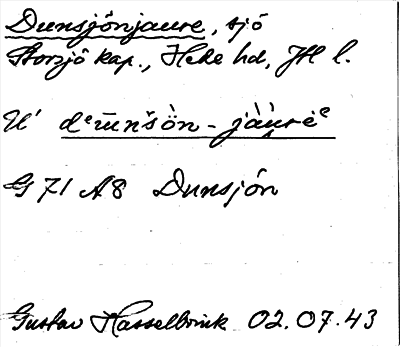 Dunsjönjaure, sjö
Storsjö kap., Hede hd, JH l.
U' dᵉūnšòn - jàu̯rèᵉ
G 71 A8 Dunsjön
Gustav Hasselbrink 02.07.43